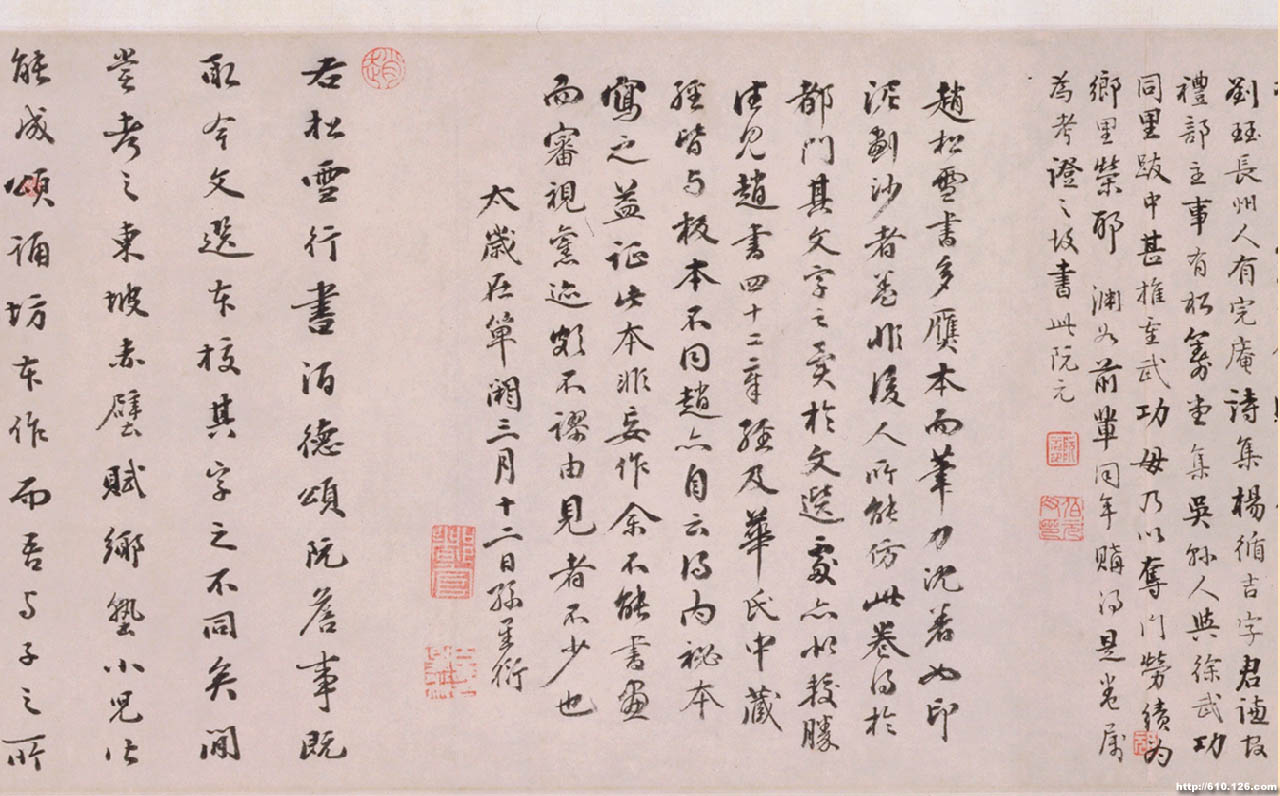 劉珏長州人有完庵詩集楊循吉字君謙
禮部主事有松籌堂集吳縣人與徐武功
同里跋中甚推重武功毋乃以奪門勞績為
鄉里榮耶 淵如前輩同年購得是卷屬
為考證之故書此阮元
趙松雪書多贋本而筆力沈著如印
泥劃沙者益非後人所能仿此卷得於
都門其文字之異於文選處亦以校勝
往見趙書四十二章經及華氏中藏
經皆与板本不同趙亦自云得內祕本
寫之益証此本非妄作余不能書畫
而審視舊迹頗不謬由見者不少也
太歲在單閼三月十二日孫星衍
右松雪行書酒德頌阮詹事既
取今文選本校其字之不同矣閒
嘗考之東坡赤壁賦鄉塾小兒
能成頌誦坊本作而吾与子之所
http://610.126.com